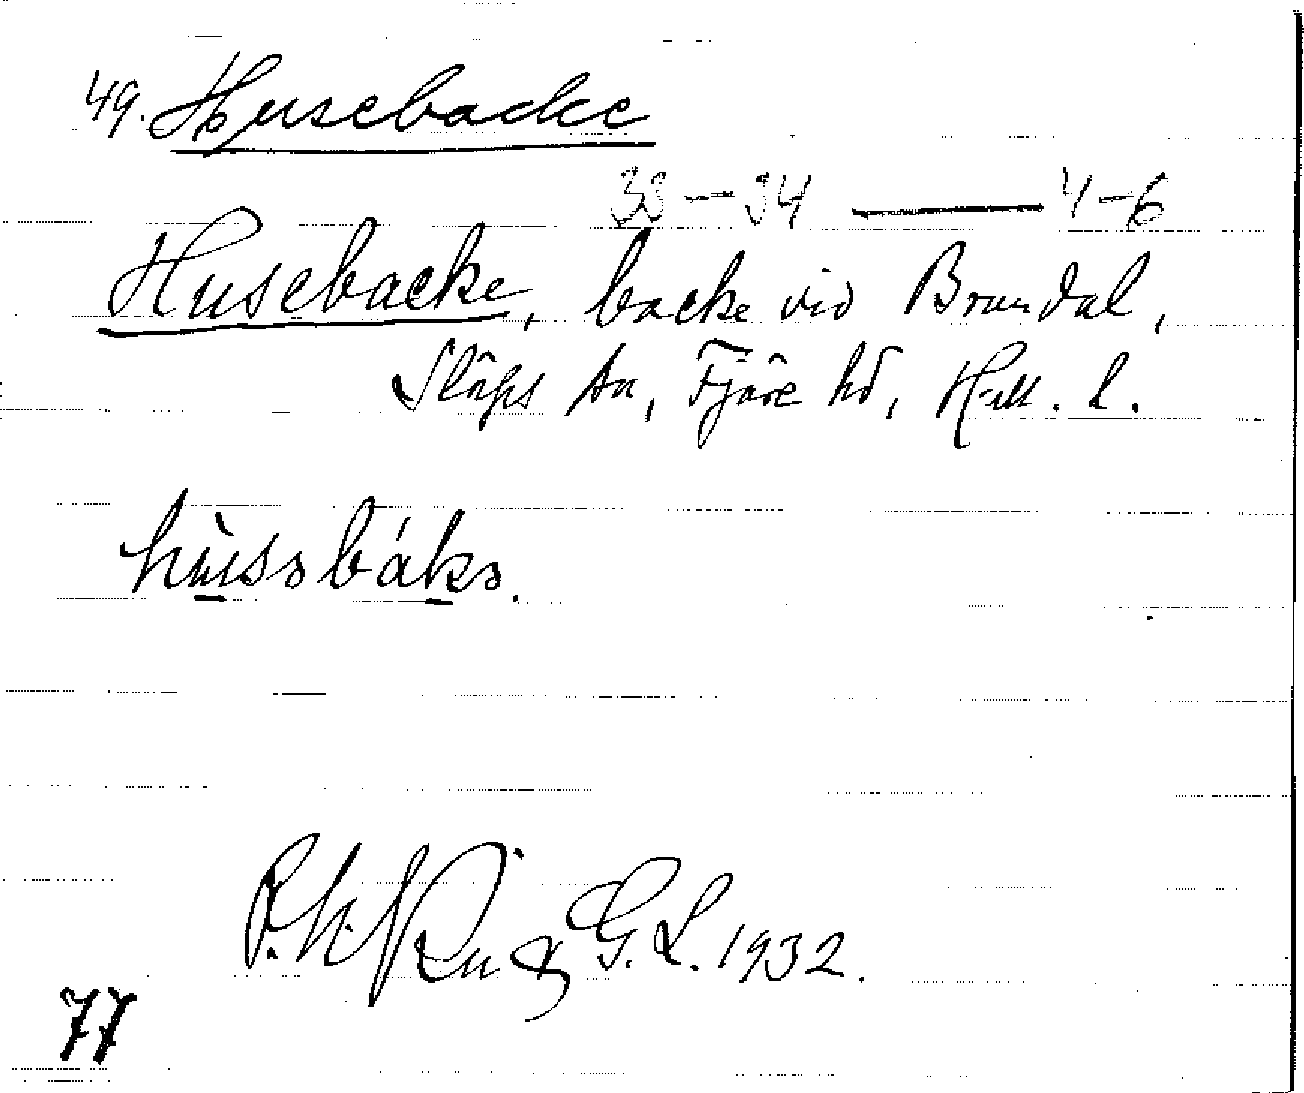 49. Husebacke
33–34 — 4–6
Husebacke, backe vid Brandal,
Släps sn, Fjäre hd, Hall. l.
hùsəbákə.
G. L. 1932.
77